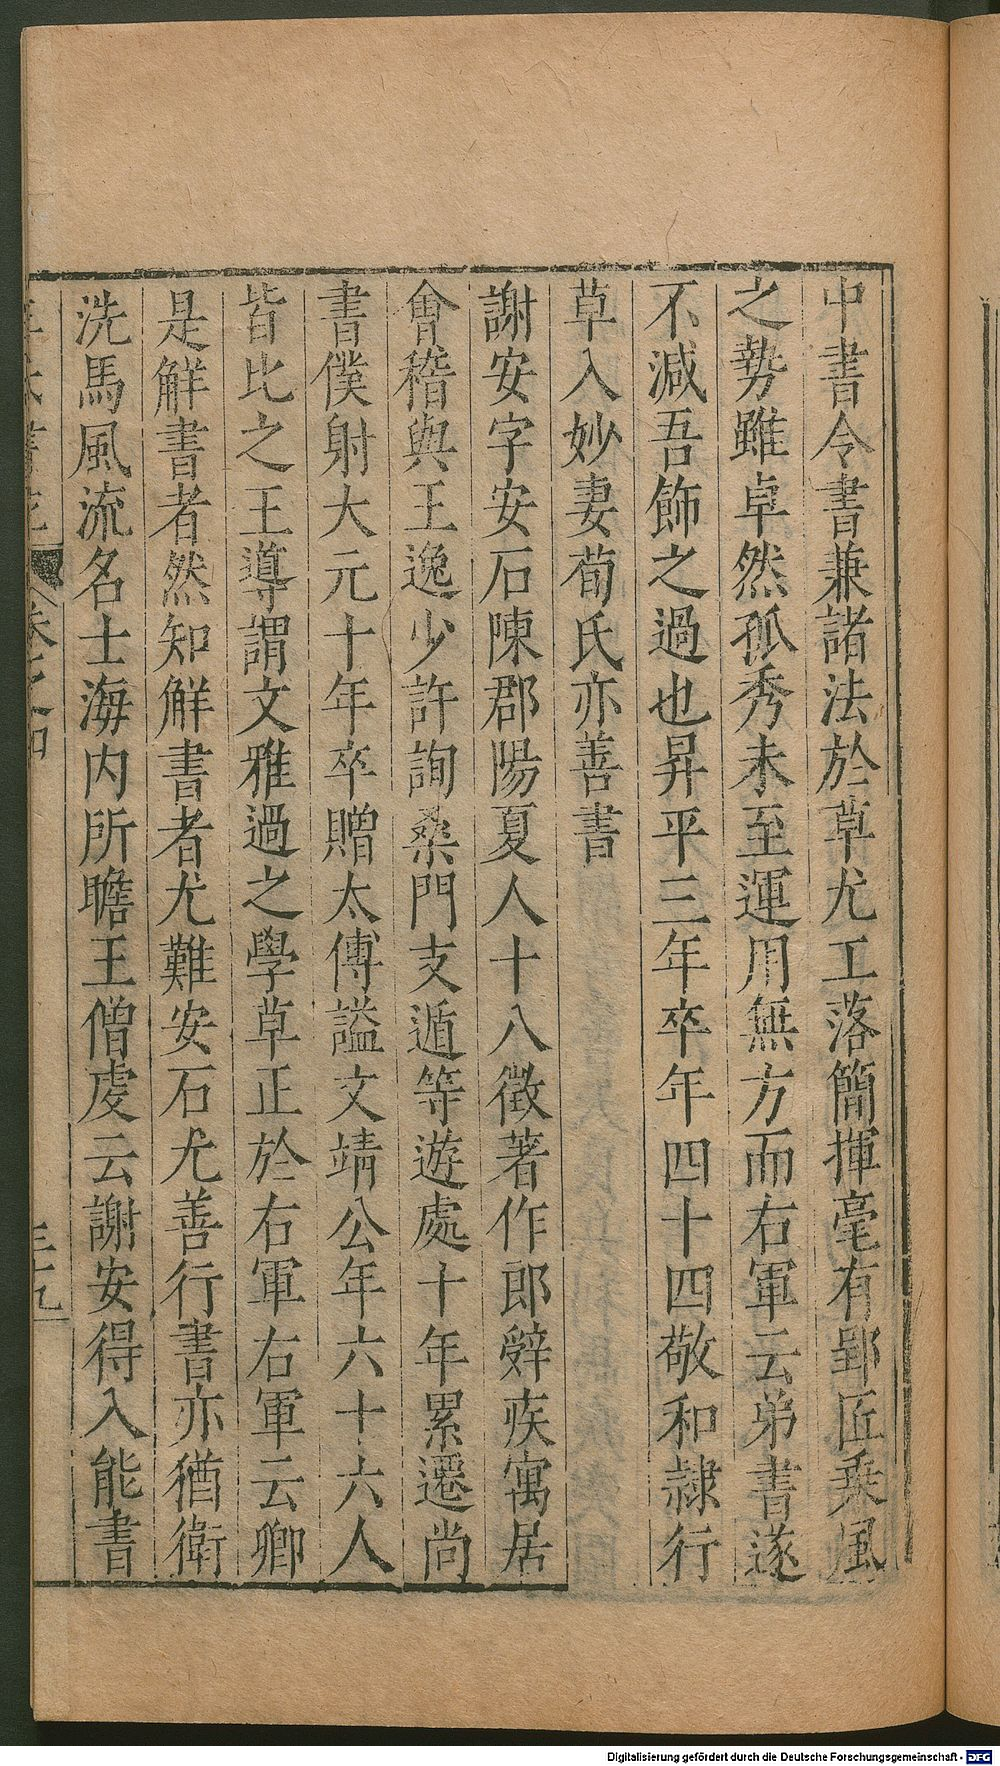 中書令書兼諸法於草尤工落簡揮毫有郢匠乗風
之勢雖卓然孤秀未至運用無方而右軍云弟書遂
不減吾飾之過也昇平三年卒年四十四敬和隷行
草入妙妻荀氏亦善書
謝安字安石陳郡陽夏人十八徴著作郎辤疾寓居
會稽與王逸少許詢桑門支遁等遊處十年累遷尚
書僕射大元十年卒贈太傅謚文靖公年六十六人
皆比之王導謂文雅過之學草正於右軍右軍云卿
是解書者然知解書者尤難安石尤善行書亦猶衛
洗馬風流名士海内所瞻王僧虔云謝安得入能書
卷之四
三十九
Digitalisierung gefördert durch die Deutsche Forschungsgemeinschaft - DFG